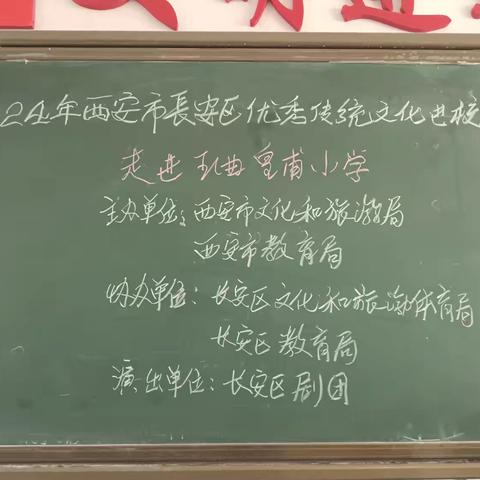 24年西安市長安区优秀传统文化进校
走进王曲皇甫小学
主办单位：西安市文化和旅游局
西安市教育局
协办单位：长安区文化和旅游体育局
长安区教育局
演出单位：长安区剧团